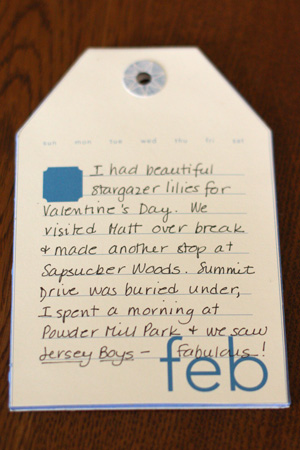 sun mon tue wed thu fri sat
I had beautiful
stargazer lilies for
Valentine's Day. We
visited Matt over break
& made another stop at
Sapsucker Woods. Summit
Drive was buried under,
I spent a morning at
Powder Mill Park & we saw
Jersey Boys - fabulous!
feb